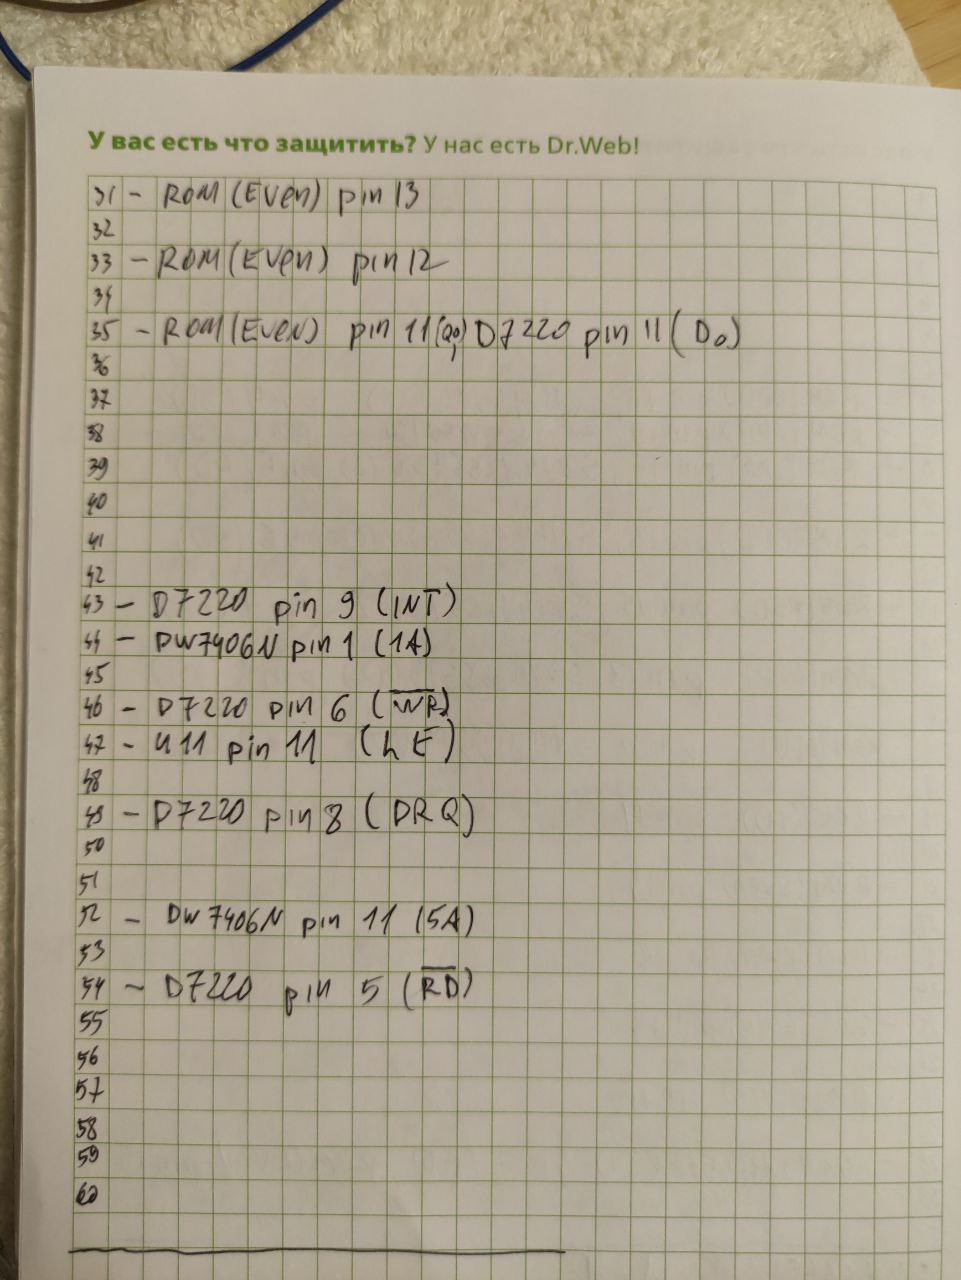 У вас есть что защитить? У нас есть Dr.Web!
31 - ROM (Even) pin 13
32
33 - ROM (Even) pin 12
34
35 - ROM (Even) pin 11 (Q0), D7220 pin 11 (D0)
36
37
38
39
40
41
42
43 - D7220 pin 9 (INT)
44 - DW7406N pin 1 (1A)
45
46 - D7220 pin 6 (W̅R̅)
47 - U11 pin 11 (LE)
48
49 - D7220 pin 8 (DRQ)
50
51
52 - DW7406N pin 11 (5A)
53
54 - D7220 pin 5 (R̅D̅)
55
56
57
58
59
60